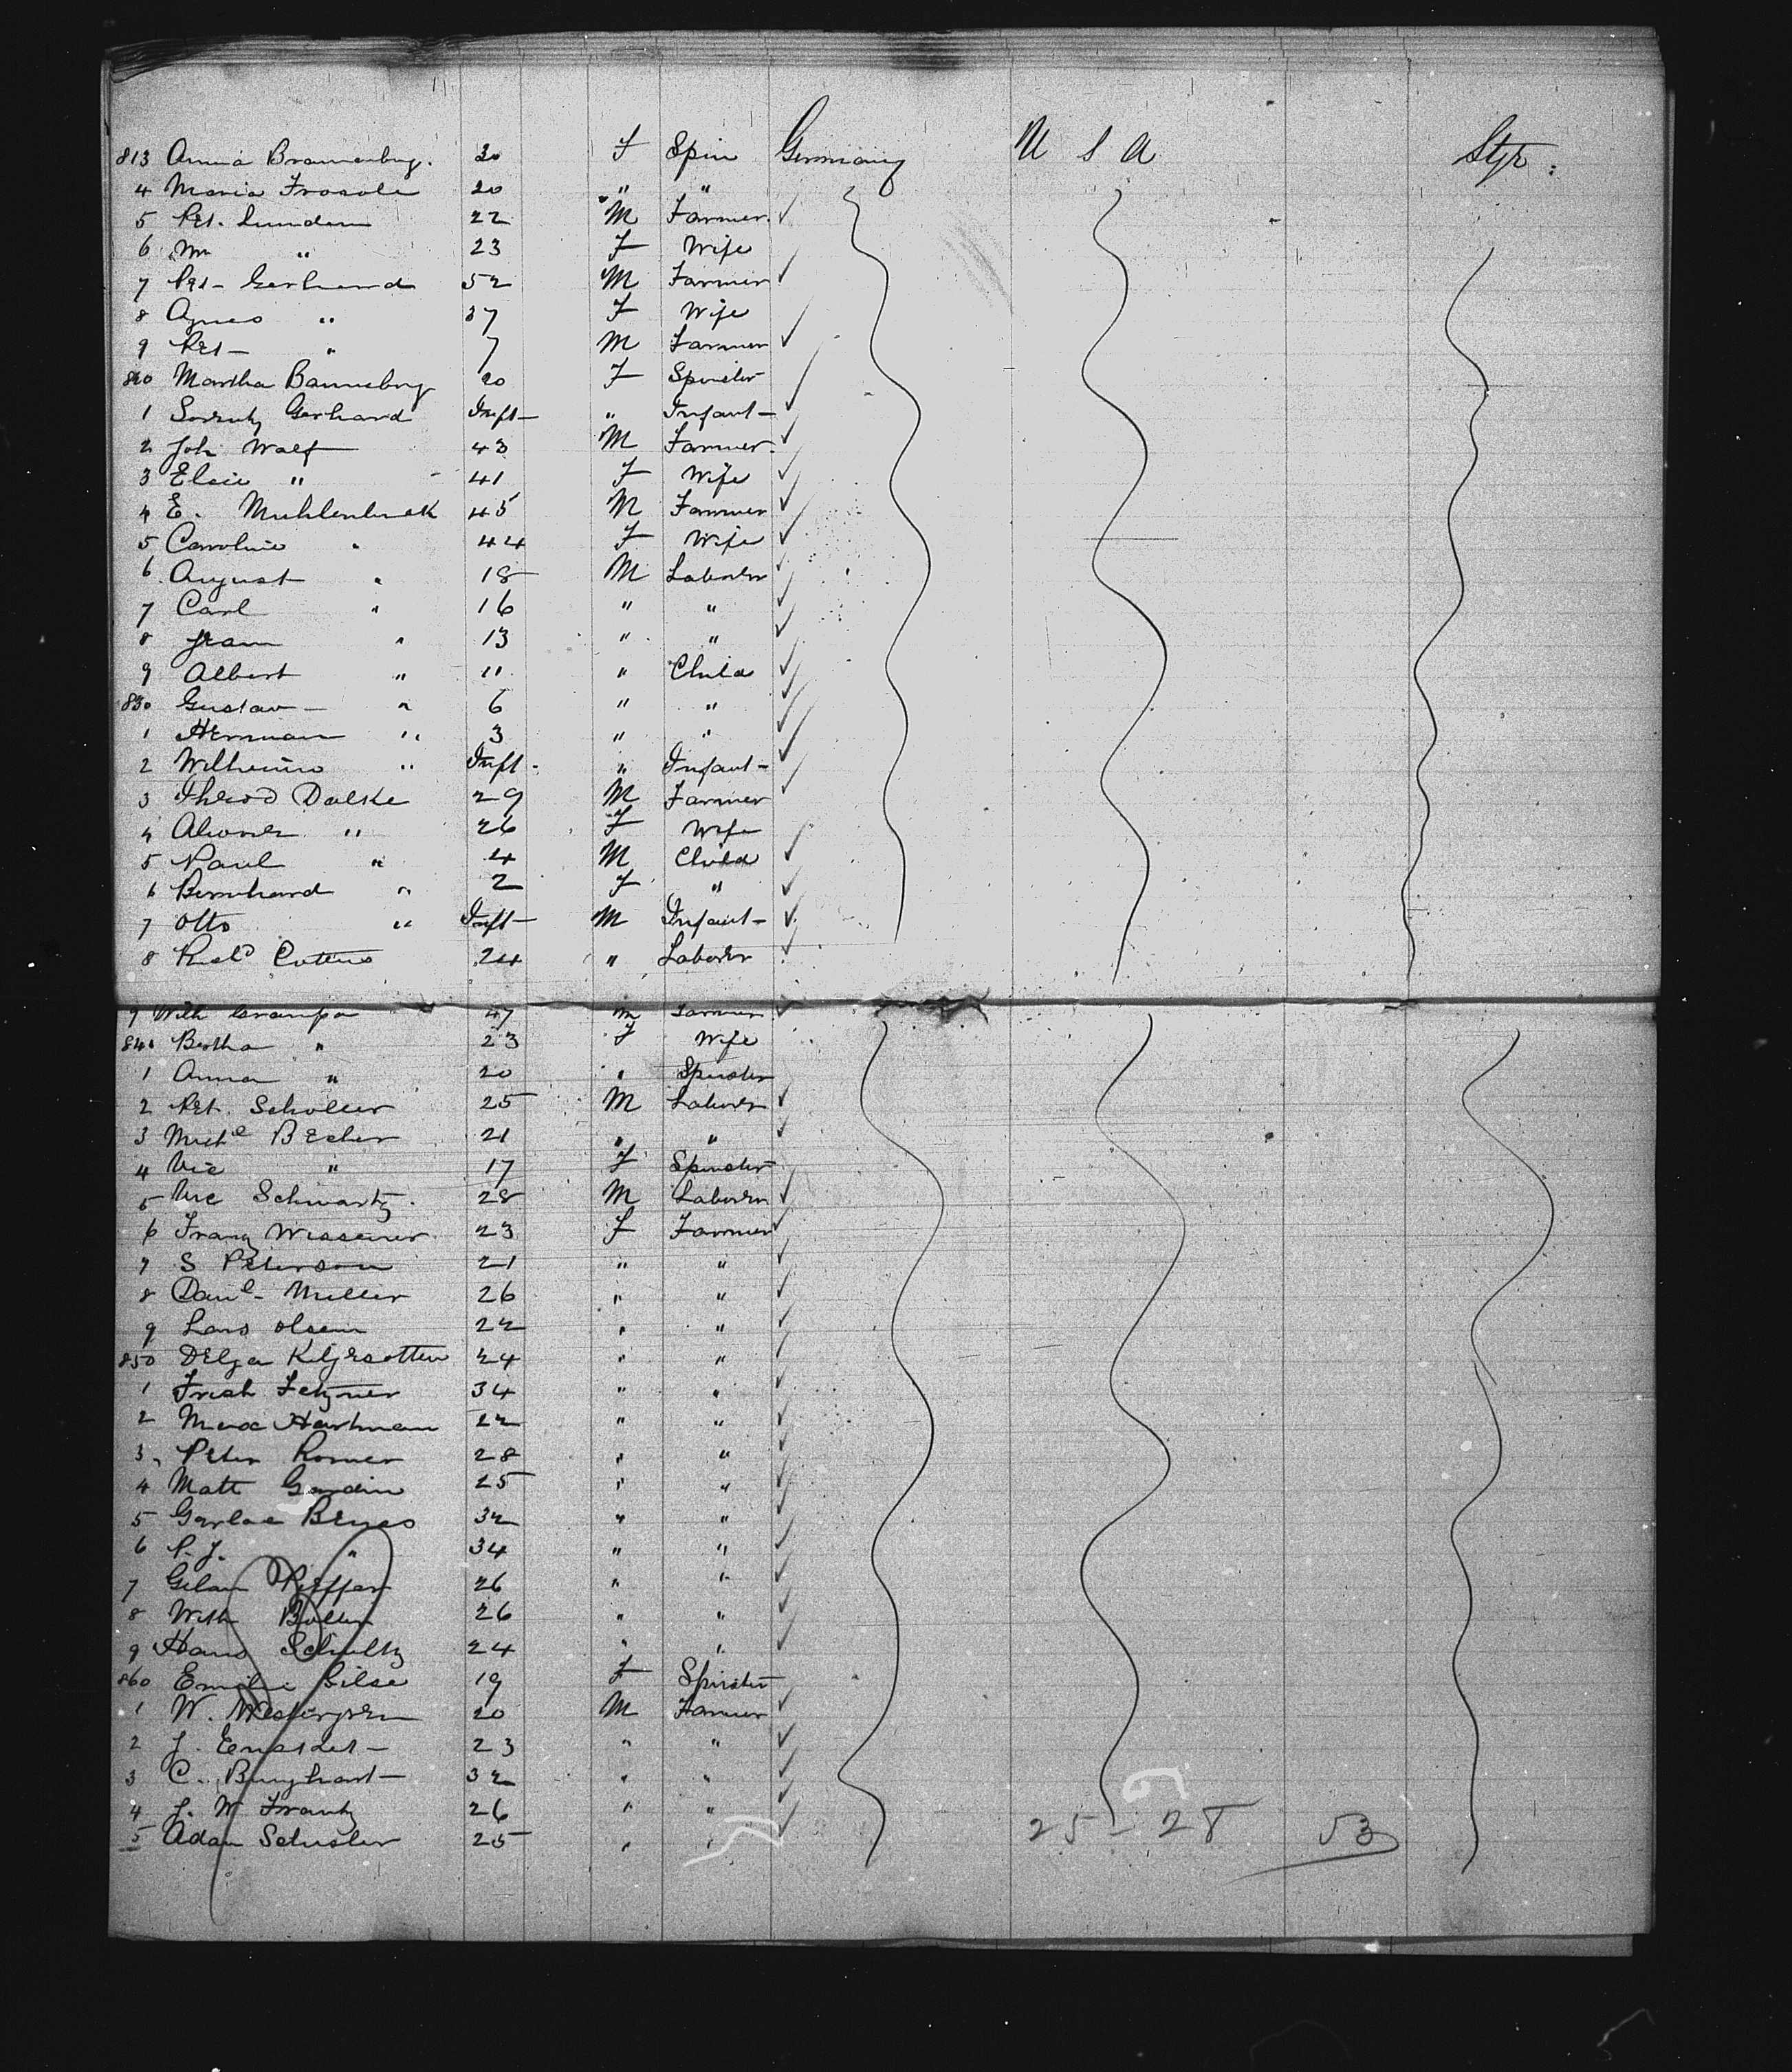 813 Anna Brannenburg. 30 F Spin Germany U S A Stge.
4 Maria Frosole 20 " "
5 Pet. Lunden 22 M Farmer
6 Mr " 23 F Wife
7 Pet- Gerhard 52 M Farmer
8 Agnes " 37 F Wife
9 Pet- " 7 M Farmer
820 Martha Bannebury 20 F Spinster
1 Gerhard Inft- " Infant-
2 Joh Walf 43 M Farmer
3 Elsie " 41 F Wife
4 E. Muhlenbuck 45 M Farmer
5 Caroline " 44 F Wife
6 August " 18 M Laborer
7 Carl " 16 " "
8 " 13 " "
9 Albert " 11 " Child
830 Gustav- " 6 " "
1 Herman " 3 " "
2 Wilhelmina " Inft- " Infant-
3 Theod Dalske 29 M Farmer
4 " 26 F Wife
5 Paul " 4 M Child
6 Bernhard " 2 F "
7 Otto " Inft- M Infant-
8 Richd 24 " Laborer
9 Wilh Grampo 47 M Farmer
840 Bertha " 23 F Wife
1 Anna " 20 " Spinster
2 Pet. Scholler 25 M Laborer
3 Michl Becher 21 " "
4 Vic " 17 F Spinster
5 Nic Schwartz. 28 M Laborer
6 Franz Wissener 23 F Farmer
7 S Peterson 21 " "
8 Danl- Miller 26 " "
9 Lars Olsen 22 " "
850 24 " "
1 Fetzner 34 " "
2 Max Hartman 22 " "
3 Peter Romer 28 " "
4 Matt Gardin 25 " "
5 32 " "
6 P. J. " 34 " "
7 Pieffer 26 " "
8 Wilh Boller 26 " "
9 Hans Schultz 24 " "
860 Emilie Gilse 19 F Spinster
1 W. Westergren 20 M Farmer
2 J. 23 " "
3 C. Burghart- 32 " "
4 J. W. Frantz 26 " "
5 Adam Schisler 25 " "
25 - 28 53